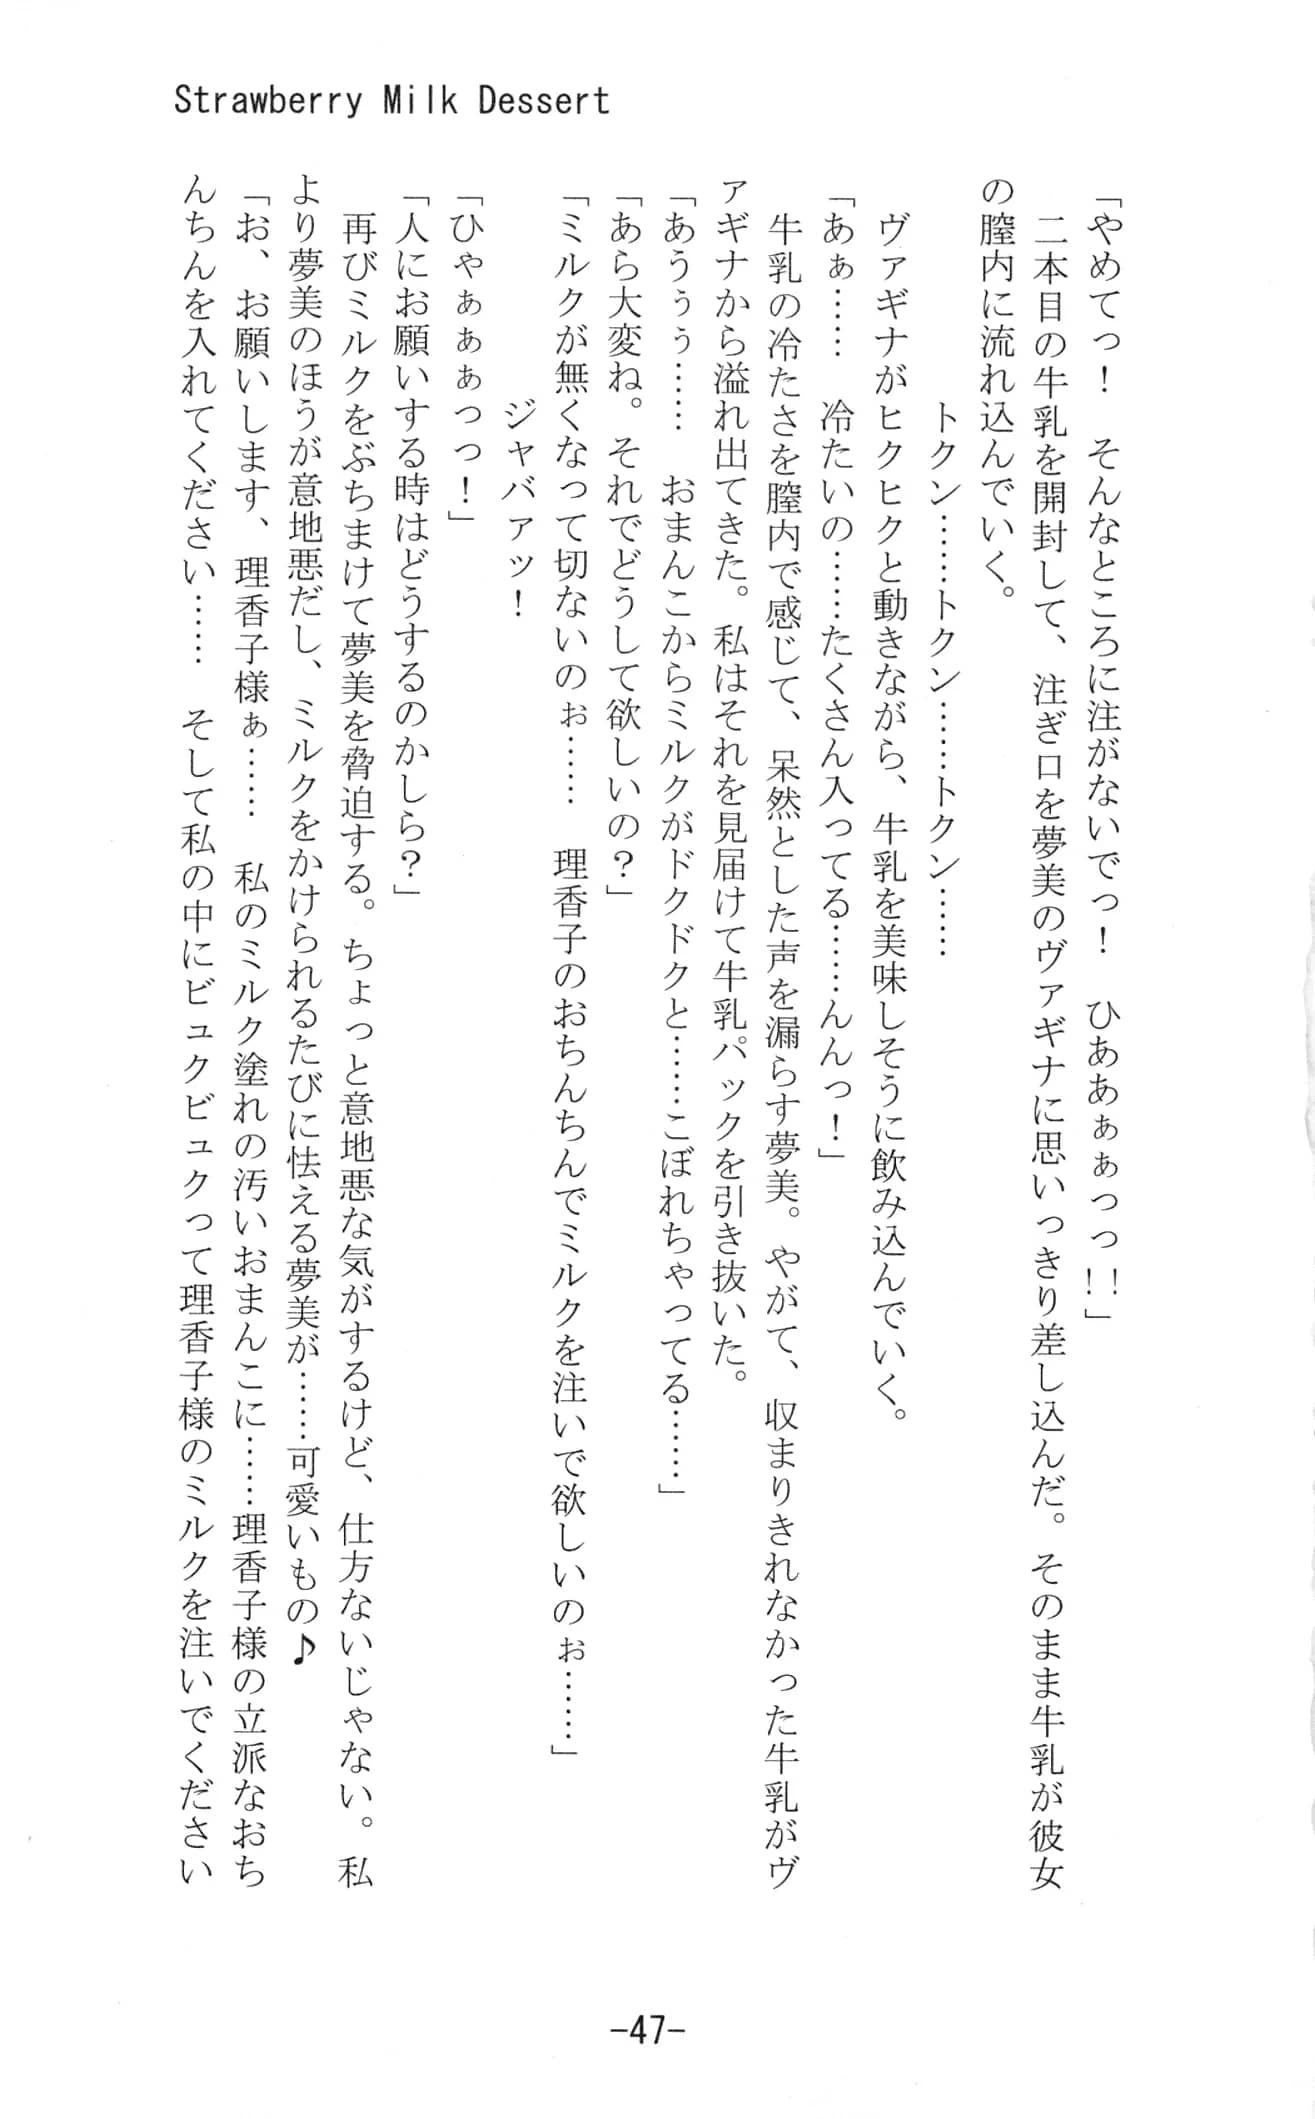 Strawberry Milk Dessert
「やめてっ！　そんなところに注がないでっ！　ひああぁぁっっ!!」
　二本目の牛乳を開封して、注ぎ口を夢美のヴァギナに思いっきり差し込んだ。そのまま牛乳が彼女
の膣内に流れ込んでいく。
トクン……トクン……トクン……
　ヴァギナがヒクヒクと動きながら、牛乳を美味しそうに飲み込んでいく。
「あぁ……　冷たいの……たくさん入ってる……んんっ！」
　牛乳の冷たさを膣内で感じて、呆然とした声を漏らす夢美。やがて、収まりきれなかった牛乳がヴ
ァギナから溢れ出てきた。私はそれを見届けて牛乳パックを引き抜いた。
「あうぅぅ……　おまんこからミルクがドクドクと……こぼれちゃってる……」
「あら大変ね。それでどうして欲しいの？」
「ミルクが無くなって切ないのぉ……　理香子のおちんちんでミルクを注いで欲しいのぉ……」
ジャバァッ！
「ひゃぁぁぁっっ！」
「人にお願いする時はどうするのかしら？」
　再びミルクをぶちまけて夢美を脅迫する。ちょっと意地悪な気がするけど、仕方ないじゃない。私
より夢美のほうが意地悪だし、ミルクをかけられるたびに怯える夢美が……可愛いもの♪
「お、お願いします、理香子様ぁ……　私のミルク塗れの汚いおまんこに……理香子様の立派なおち
んちんを入れてください……　そして私の中にビュクビュクって理香子様のミルクを注いでください
-47-